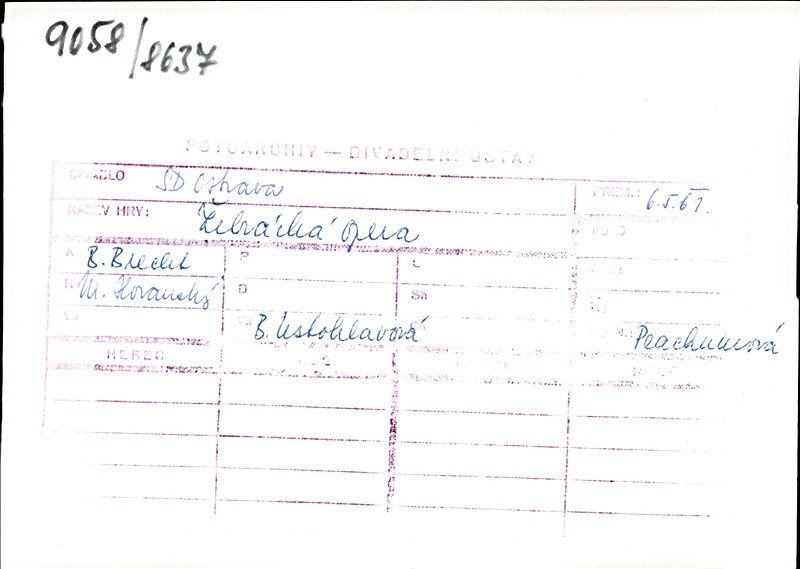 9058/8637
FOTOARCHIV — DIVADELNÍ ÚSTAV
DIVADLO SD Ostrava PREM.: 6.5.61.
NÁZEV HRY: Žebrácká opera
A B. Brecht P L
R M. Horanský D Sh
B. Ustohlavová Peachumová
HEREC